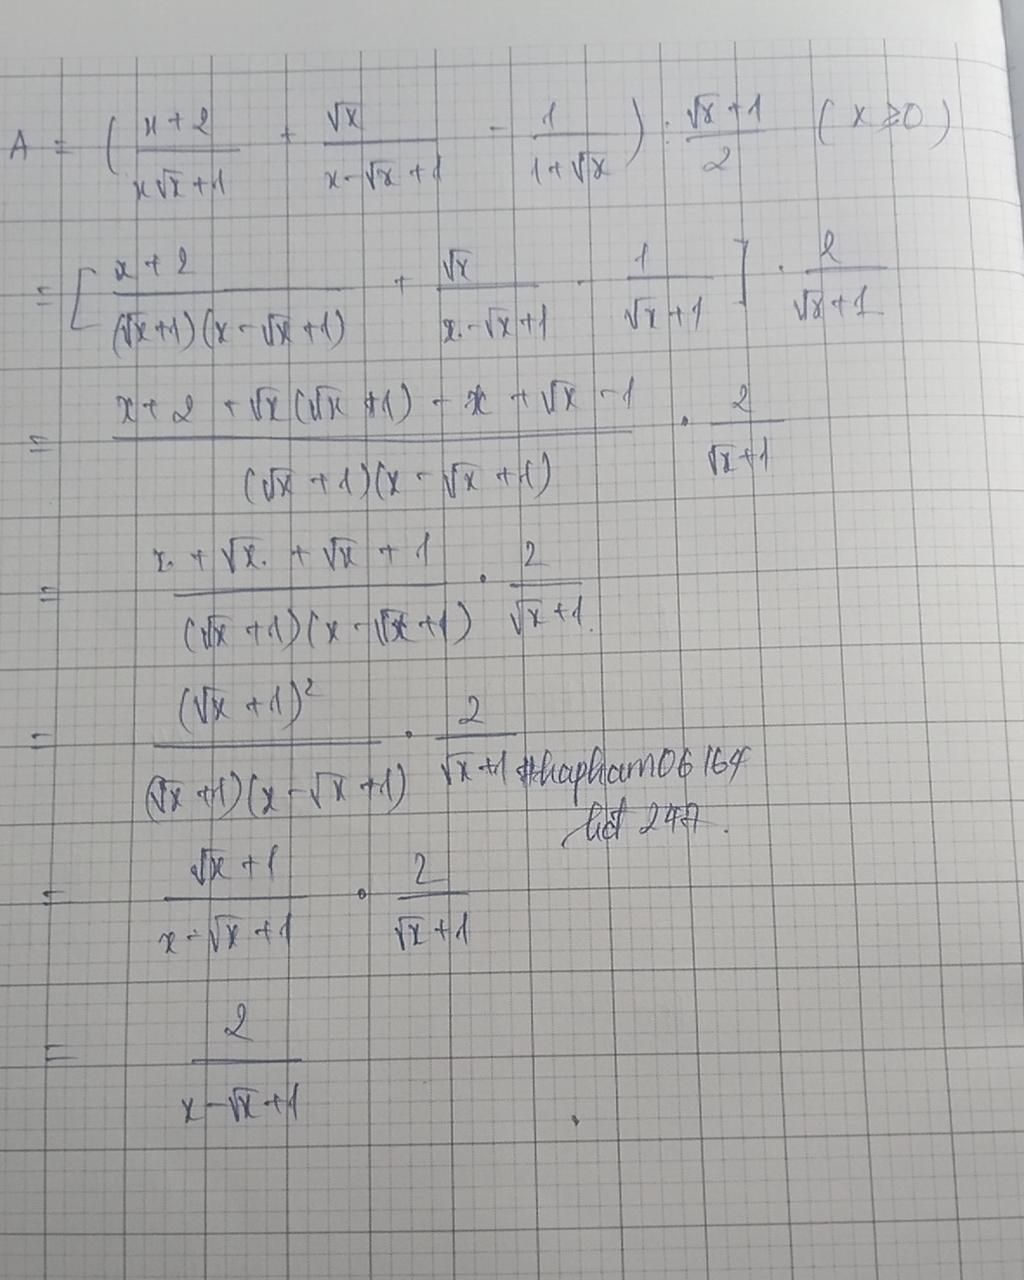 A = ( \frac{x+2}{x\sqrt{x}+1} + \frac{\sqrt{x}}{x-\sqrt{x}+1} - \frac{1}{1+\sqrt{x}} ) : \frac{\sqrt{x}+1}{2} ( x ≥ 0 )
= [ \frac{x+2}{(\sqrt{x}+1)(x-\sqrt{x}+1)} + \frac{\sqrt{x}}{x-\sqrt{x}+1} - \frac{1}{\sqrt{x}+1} ] . \frac{2}{\sqrt{x}+1}
= \frac{x+2+\sqrt{x}(\sqrt{x}+1)-x+\sqrt{x}-1}{(\sqrt{x}+1)(x-\sqrt{x}+1)} . \frac{2}{\sqrt{x}+1}
= \frac{x+\sqrt{x}+\sqrt{x}+1}{(\sqrt{x}+1)(x-\sqrt{x}+1)} . \frac{2}{\sqrt{x}+1}
= \frac{(\sqrt{x}+1)^2}{(\sqrt{x}+1)(x-\sqrt{x}+1)} . \frac{2}{\sqrt{x}+1}
#hapham06164
247.
= \frac{\sqrt{x}+1}{x-\sqrt{x}+1} . \frac{2}{\sqrt{x}+1}
= \frac{2}{x-\sqrt{x}+1}